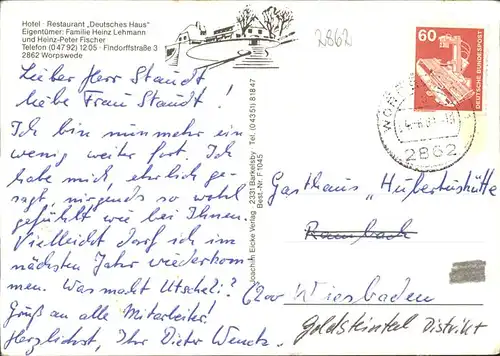 Hotel · Restaurant „Deutsches Haus"
Eigentümer: Familie Heinz Lehmann
und Heinz-Peter Fischer
Telefon (0 47 92) 12 05 · Findorffstraße 3
2862 Worpswede
2862
60
DEUTSCHE BUNDESPOST
2862
Lieber Herr Staudt
liebe Frau Staudt
Ich bin nunmehr ein
wenig weiter fort. Ich
habe mich, ehrlich ge-
sagt, nirgends so wohl
gefühlt wie bei Ihnen.
Vielleicht darf ich im
nächsten Jahr wiederkom-
men. Was macht Utschel?
Gruß an alle Mitarbeiter!
Herzlichst, Ihr Dieter
Joachim Eicke Verlag 2331 Barkelsby Tel. (0 43 51) 8 18 47
Best.-Nr. F 1045
Gasthaus "Hubertushütte
Rambach
6200 Wiesbaden
Goldsteintal Distrikt